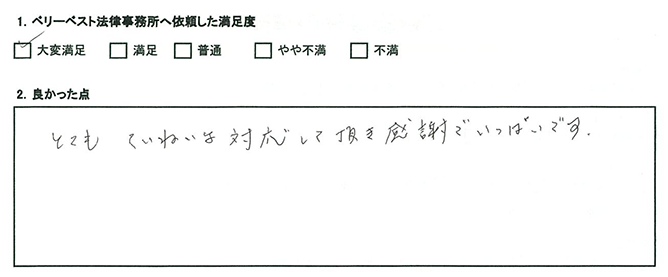 1. ベリーベスト法律事務所へ依頼した満足度
大変満足 満足 普通 やや不満 不満
2. 良かった点
とても ていねいな対応して頂き感謝でいっぱいです.